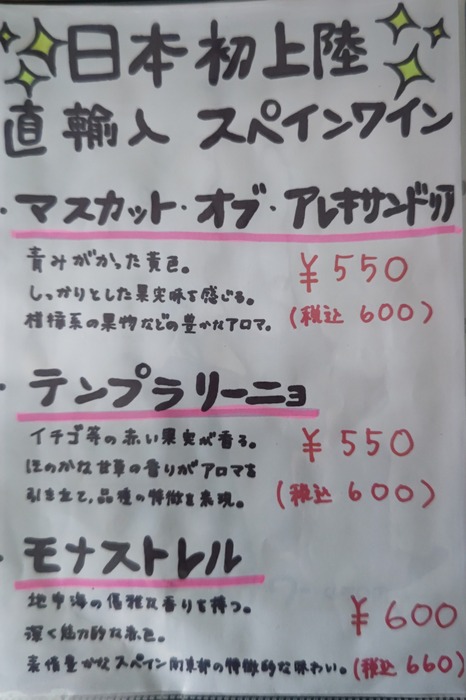 日本初上陸
直輸入 スペインワイン
・マスカット・オブ・アレキサンドリア
青みがかった黄色。
¥550
しっかりとした果実味を感じる。
柑橘系の果物などの豊かなアロマ。(税込 600)
・テンプラリーニョ
イチゴ等の赤い果実が香る。
¥550
ほのかな甘草の香りがアロマを
引き立て、品種の特徴を表現。(税込 600)
・モナストレル
地中海の優雅な香りを持つ。
¥600
深く魅力的な赤色。
表情豊かなスペイン南東部の特徴的な味わい。(税込 660)